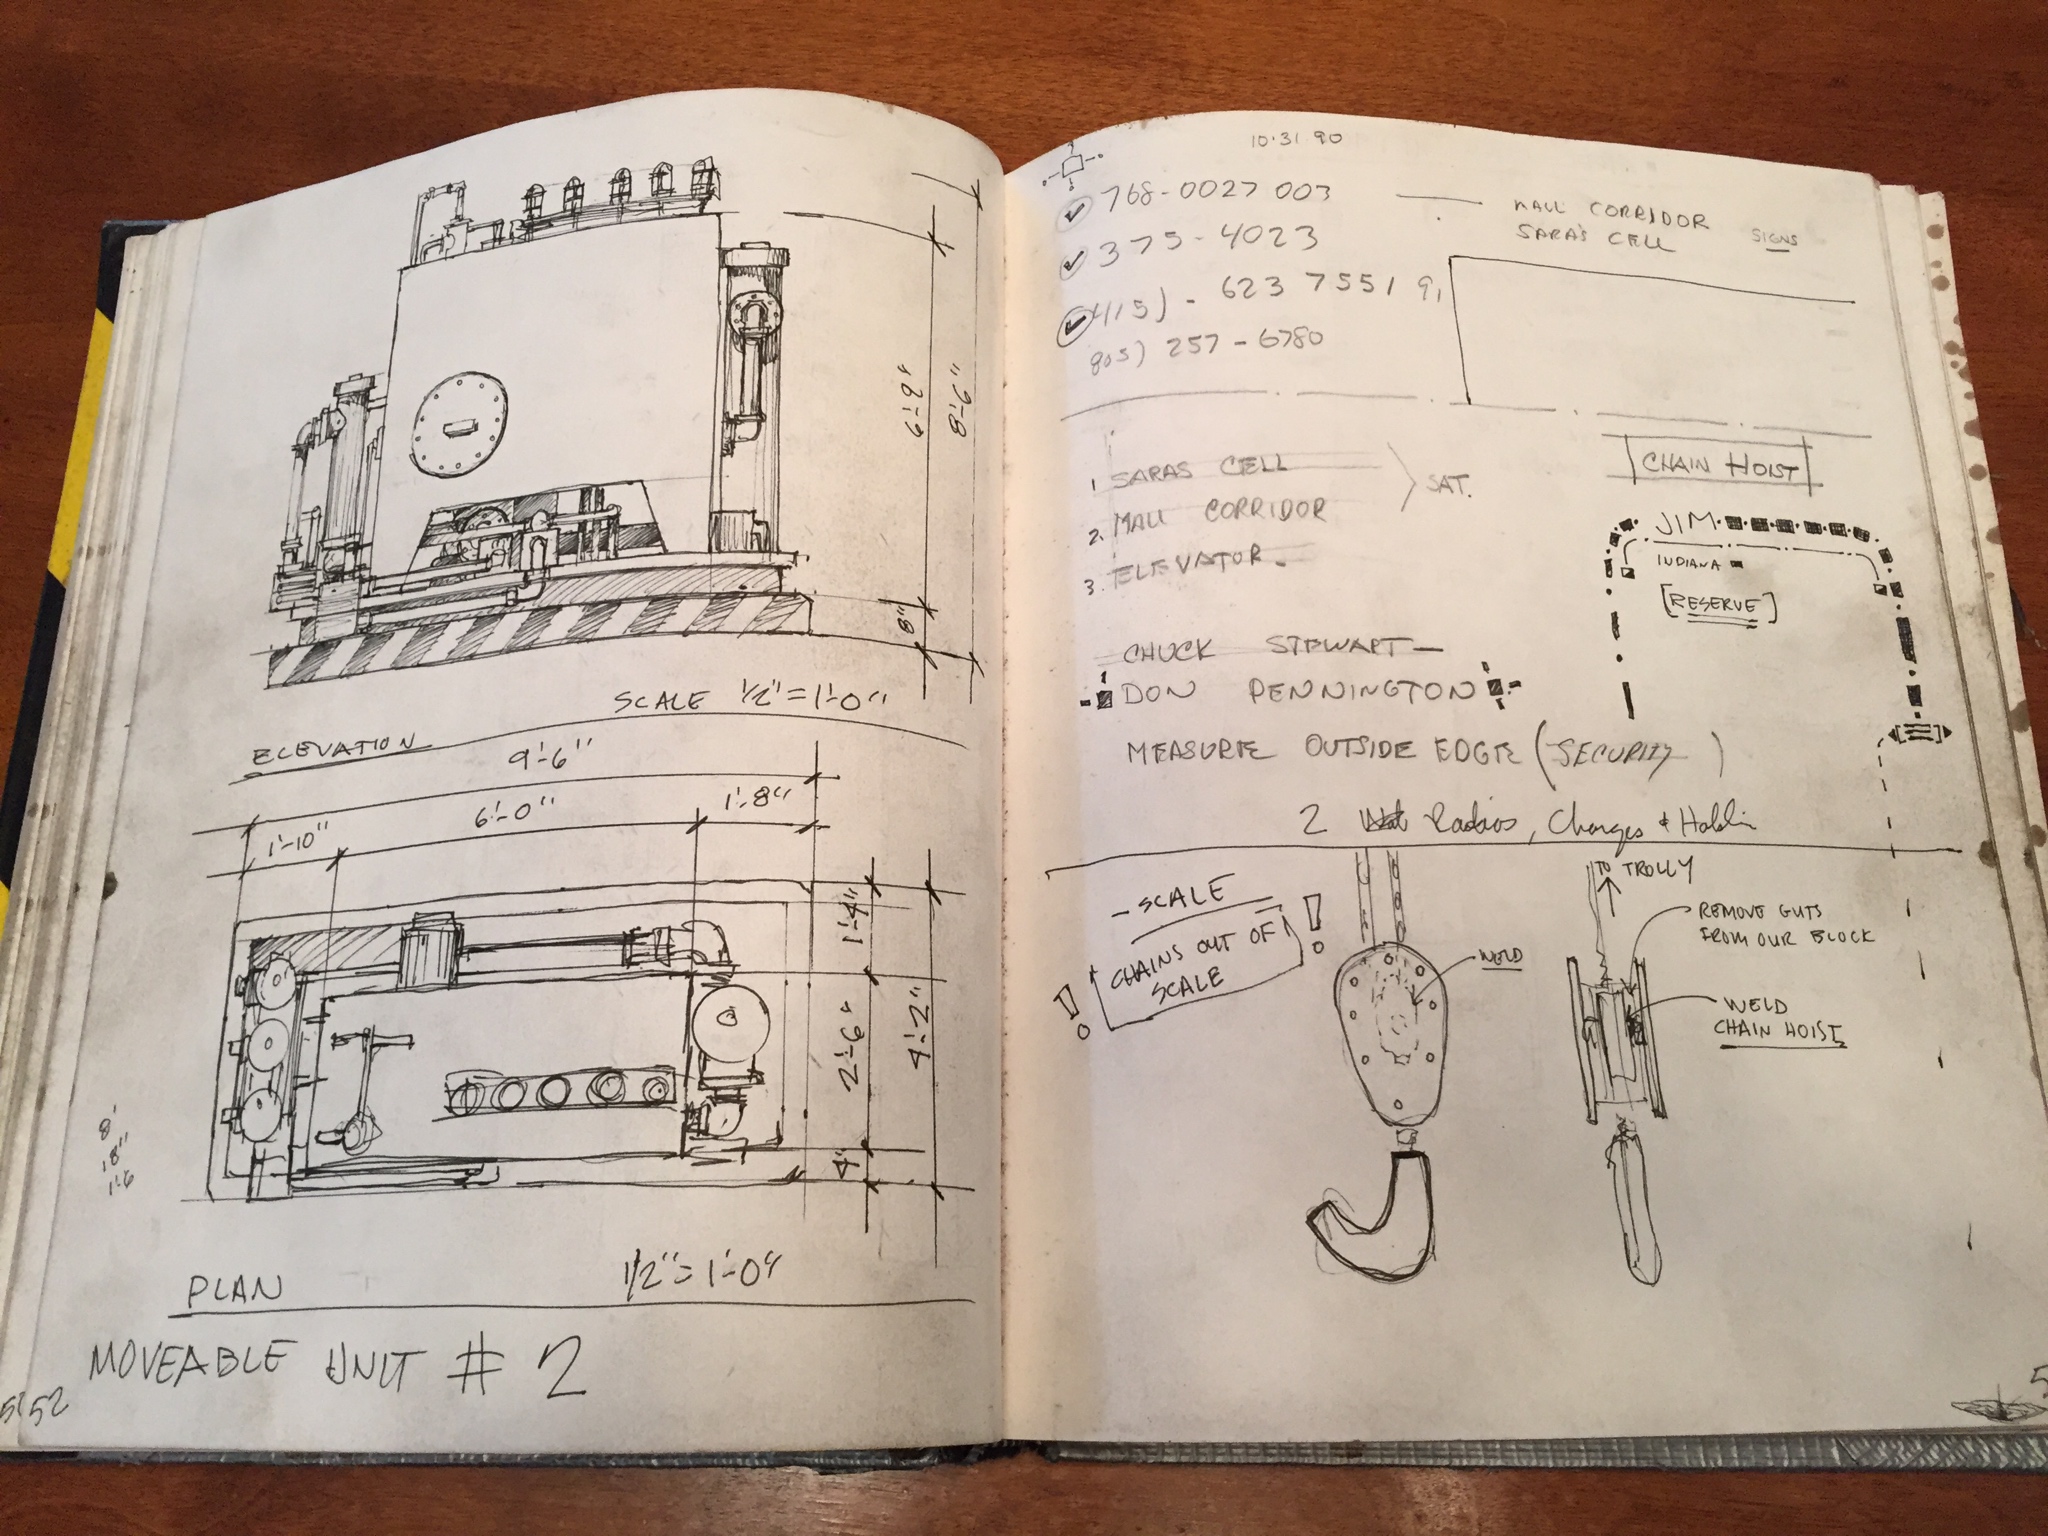 6'-9"
8'-6"
8"
SCALE 1/2" = 1'-0"
ELEVATION
9'-6"
6'-0"
1'-8"
1'-10"
1'-4"
2'-6"
4'-2"
4"
8'
18"
1'-6
PLAN
1/2" = 1'-0"
MOVEABLE UNIT # 2
52
10·31 90
768-0027 003
MALL CORRIDOR
SARA'S CELL
SIGNS
375-4023
415) - 623 7551
805) 257-6780
1 SARAS CELL
SAT.
2. MALL CORRIDOR
3. ELEVATOR
CHAIN HOIST
JIM
INDIANA
[RESERVE]
CHUCK STEWART —
DON PENNINGTON
MEASURE OUTSIDE EDGE (SECURITY)
2 Radios, Charges +
- SCALE
CHAINS OUT OF
SCALE
!
!
WELD
TO TROLLY
REMOVE GUTS
FROM OUR BLOCK
WELD
CHAIN HOIST
5